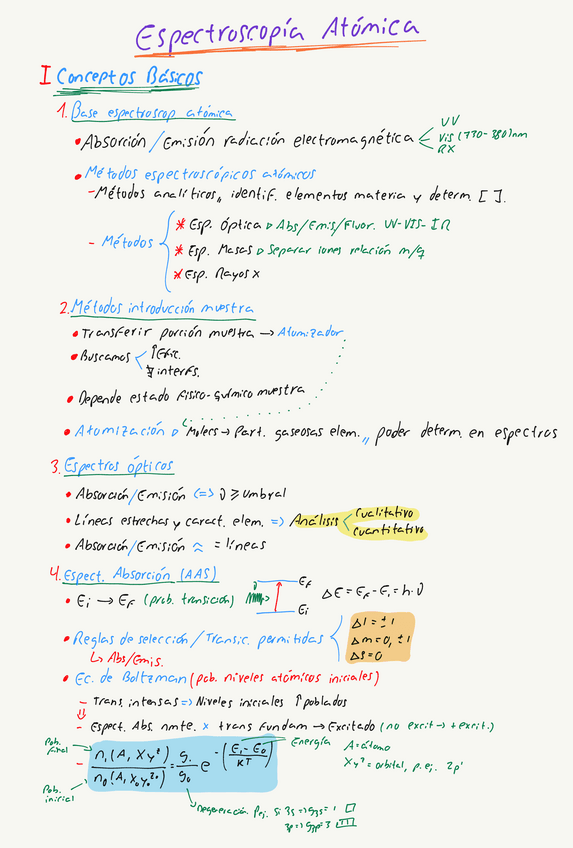 Espectroscopía Atómica
I Conceptos Básicos
1. Base espectroscop atómica
• Absorción / Emisión radiación electromagnética < UV
Vis (770-380) nm
RX
• Métodos espectroscópicos atómicos
- Métodos analíticos,, identif. elementos materia y determ. [ ].
- Métodos
* Esp. Óptica ▷ Abs/Emis/Fluor. UV-VIS-IR
* Esp. Masas ▷ Separar iones relación m/q
* Esp. Rayos X
2. Métodos introducción muestra
• Transferir porción muestra → Atomizador
• Buscamos < ↑Efic.
∄ interfs.
• Depende estado físico-químico muestra
• Atomización ▷ Molecs → Part. gaseosas elem.,, poder determ. en espectros
3. Espectros ópticos
• Absorción/Emisión <=> υ ≥ umbral
• Líneas estrechas y caract. elem. => Análisis < Cualitativo
Cuantitativo
• Absorción/Emisión ≈ = líneas
4. Espect. Absorción (AAS)
• Ei → Ef (prob. transición)
υ
Ef
Ei
ΔE = Ef - Ei = h·υ
• Reglas de selección / Transic. permitidas
Δl = ±1
Δm = 0, ±1
Δs = 0
↳ Abs/Emis.
• Ec. de Boltzman (pob. niveles atómicos iniciales)
- Trans. intensas => Niveles iniciales ↑poblados
- Espect. Abs. nmte. x trans fundam → Excitado (no excit → + excit.)
Pob. final
- n₁(A, Xy^z) / n₀(A, X₀y₀^z₀) = g₁/g₀ e^-((E₁-E₀)/KT)
Energía
A = átomo
Xy^z = orbital, p. ej. 2p¹
Pob. inicial
Degeneración. P.ej. Si 3s => g3s = 1 □
3p => g3p = 3 □□□